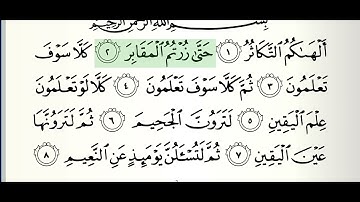 بِسْمِ ٱللَّهِ ٱلرَّحْمَٰنِ ٱلرَّحِيمِ
أَلْهَىٰكُمُ ٱلتَّكَاثُرُ ١ حَتَّىٰ زُرْتُمُ ٱلْمَقَابِرَ ٢ كَلَّا سَوْفَ
تَعْلَمُونَ ٣ ثُمَّ كَلَّا سَوْفَ تَعْلَمُونَ ٤ كَلَّا لَوْ تَعْلَمُونَ
عِلْمَ ٱلْيَقِينِ ٥ لَتَرَوُنَّ ٱلْجَحِيمَ ٦ ثُمَّ لَتَرَوُنَّهَا
عَيْنَ ٱلْيَقِينِ ٧ ثُمَّ لَتُسْـَٔلُنَّ يَوْمَئِذٍ عَنِ ٱلنَّعِيمِ ٨